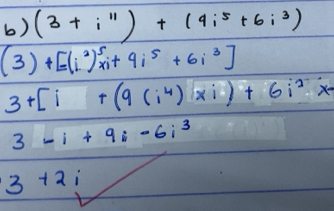 b) (3 + i¹¹) + (9i⁵ + 6i³)
(3) + [(i²)⁵xi + 9i⁵ + 6i³]
3 + [i + (9(i⁴) xi) + 6i² x
3 - i + 9i - 6i³
3 + 2i